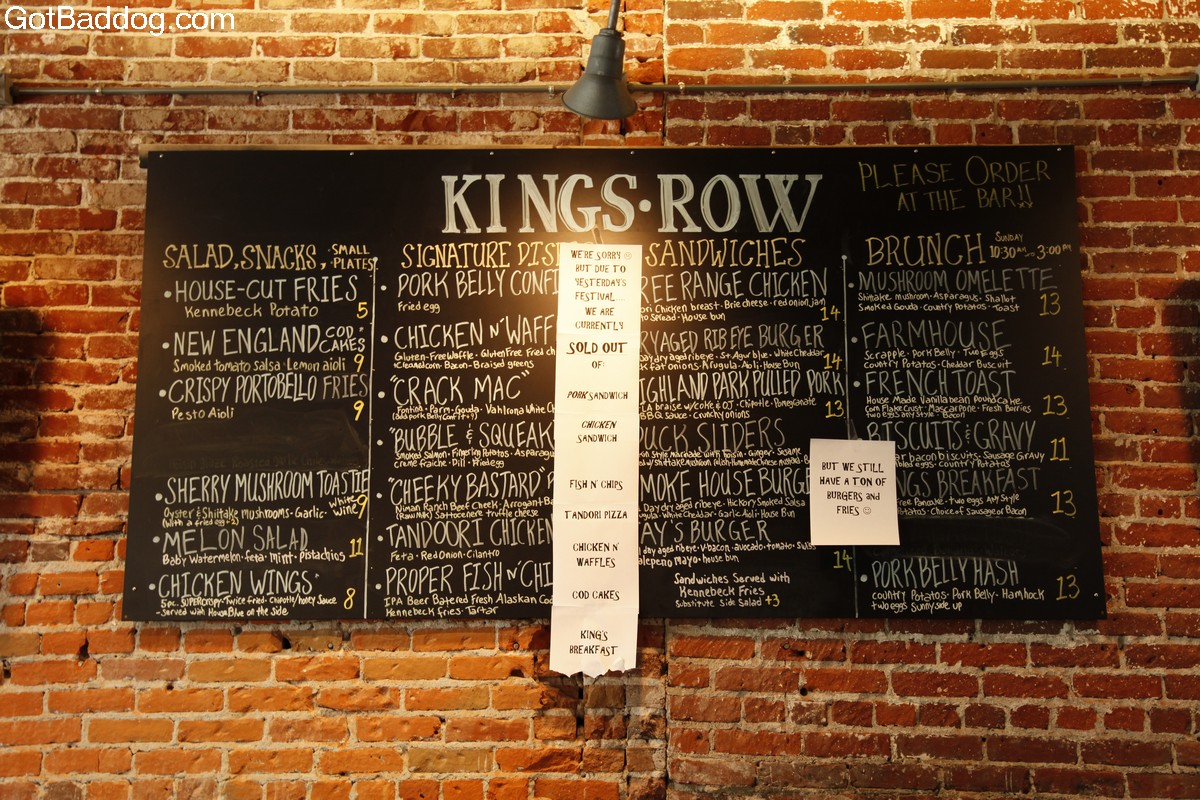 GotBaddog.com
KINGS·ROW
PLEASE ORDER
AT THE BAR!!
SALAD, SNACKS, SMALL PLATES
HOUSE-CUT FRIES
Kennebeck Potato 5
NEW ENGLAND COD CAKES
Smoked tomato salsa · Lemon aioli 9
CRISPY PORTOBELLO FRIES
Pesto Aioli 9
SHERRY MUSHROOM TOASTIE
Oyster & Shitake mushrooms · Garlic · White Wine 9
(with a fried egg + 2)
MELON SALAD
Baby Watermelon · feta · mint · pistachios 11
CHICKEN WINGS
5pc. SUPERCRISPY · Twice fried · Chipotle/honey Sauce 8
Served with House Blue on the side
SIGNATURE DIS
PORK BELLY CONFI
Fried egg
CHICKEN N' WAFF
Gluten-Free Waffle · Gluten Free Fried ch
Bacon · Braised greens
"CRACK MAC"
Fontina · Parm · Gouda · White Ch
"BUBBLE & SQUEAK
Smoked Salmon · Fingerling Potatoes · Asparagus
creme fraiche · Dill · Fried egg
"CHEEKY BASTARD"
Niman Ranch Beef Cheek · Arrogant Ba
truffle cheese
TANDOORI CHICKEN
Feta · Red Onion · Cilantro
PROPER FISH N' CHI
IPA Beer Batered Fresh Alaskan Cod
Kennebeck Fries · Tartar
WE'RE SORRY ☹
BUT DUE TO
YESTERDAY'S
FESTIVAL
WE ARE
CURRENTLY
SOLD OUT
OF:
PORK SANDWICH
CHICKEN
SANDWICH
FISH N' CHIPS
TANDORI PIZZA
CHICKEN N'
WAFFLES
COD CAKES
KING'S
BREAKFAST
SANDWICHES
REE RANGE CHICKEN
Chicken breast · Brie cheese · red onion jam
Spread · House bun 14
RY AGED RIB EYE BURGER
day dry aged ribeye · St. Agur blue · White Cheddar
fat onions · Arugula · Aioli · House Bun 14
IGHLAND PARK PULLED PORK
braise w/coke & OJ · Chipotle · Pomegranate
BBQ Sauce · Crunchy onions 13
DUCK SLIDERS
MOKE HOUSE BURGE
Day dry aged ribeye · Hickory Smoked Salsa
White Cheddar · Garlic Aioli · House Bun
AY'S BURGER
day aged ribeye · bacon · avocado · tomato · Swiss
Jalepeno mayo · house bun 14
Sandwiches Served with
Kennebeck Fries
Substitute Side Salad +3
BUT WE STILL
HAVE A TON OF
BURGERS and
FRIES ☺
BRUNCH SUNDAY 10:30 AM - 3:00 PM
MUSHROOM OMELETTE
Shitake mushroom · Asparagus · Shallot
Smoked Gouda · Country Potatoes · Toast 13
FARMHOUSE
Scrapple · Pork Belly · Two Eggs
Country Potatos · Cheddar Buscuit 14
FRENCH TOAST
House Made Vanilla bean pound cake
Corn Flake Crust · Mascarpone · Fresh Berries
two eggs any style · Bacon 13
BISCUITS & GRAVY
bacon biscuits · Sausage Gravy
eggs · Country Potatos 11
NGS BREAKFAST
Pancake · Two eggs Any Style
Choice of Sausage or Bacon 13
PORK BELLY HASH
Country Potatos · Pork Belly · Ham hock
two eggs Sunny side up 13